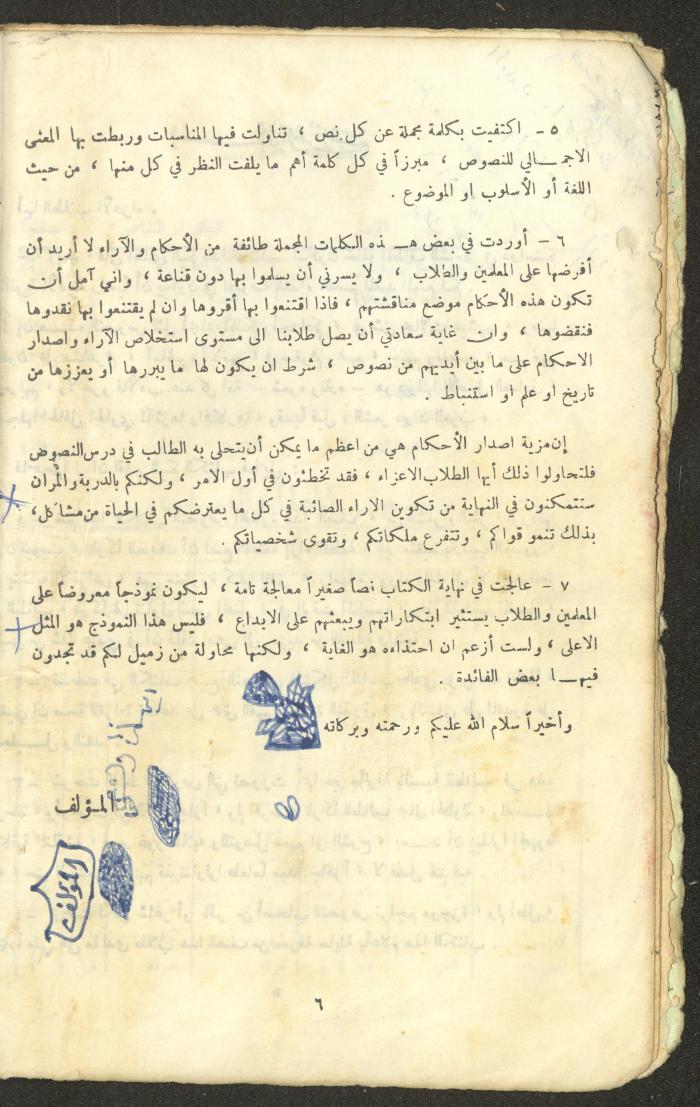 ٥ - اكتفيت بكلمة مجملة عن كل نص ، تناولت فيها المناسبات وربطت بها المعنى
الاجمـــالي للنصوص ، مبرزاً في كل كلمة أهم ما يلفت النظر في كل منها ، من حيث
اللغة أو الأسلوب او الموضوع .
٦ - أوردت في بعض هـــذه الكلمات المجملة طائفة من الأحكام والآراء لا أريد أن
أفرضها على المعلمين والطلاب ، ولا يسرني أن يسلموا بها دون قناعة ، واني آمل أن
تكون هذه الأحكام موضع مناقشتهم ، فاذا اقتنعوا بها أقروها وان لم يقتنعوا بها نقدوها
فنقضوها ، وان غاية سعادتي أن يصل طلابنا الى مستوى استخلاص الآراء واصدار
الاحكام على ما بين أيديهم من نصوص ، شرط ان يكون لها ما يبررها أو يعززها من
تاريخ او علم او استنباط .
إن مزية اصدار الأحكام هي من اعظم ما يمكن أن يتحلى به الطالب في درس النصوص
فلتحاولوا ذلك أيها الطلاب الاعزاء ، فقد تخطئون في أول الامر ، ولكنكم بالدربة والمُران
ستتمكنون في النهاية من تكوين الاراء الصائبة في كل ما يعترضكم في الحياة من مشاكل،
بذلك تنمو قواكم ، وتتفرع ملكاتكم ، وتقوى شخصياتكم .
٧ - عالجت في نهاية الكتاب نصاً صغيراً معالجة تامة ، ليكون نموذجاً معروضاً على
المعلمين والطلاب يستثير ابتكاراتهم ويبعثهم على الابداع ، فليس هذا النموذج هو المثل
الاعلى ، ولست أزعم ان احتذاءه هو الغاية ، ولكنها محاولة من زميل لكم قد تجدون
فيهـــا بعض الفائدة .
وأخيراً سلام الله عليكم ورحمته وبركاته
المؤلف
المؤلف
٦